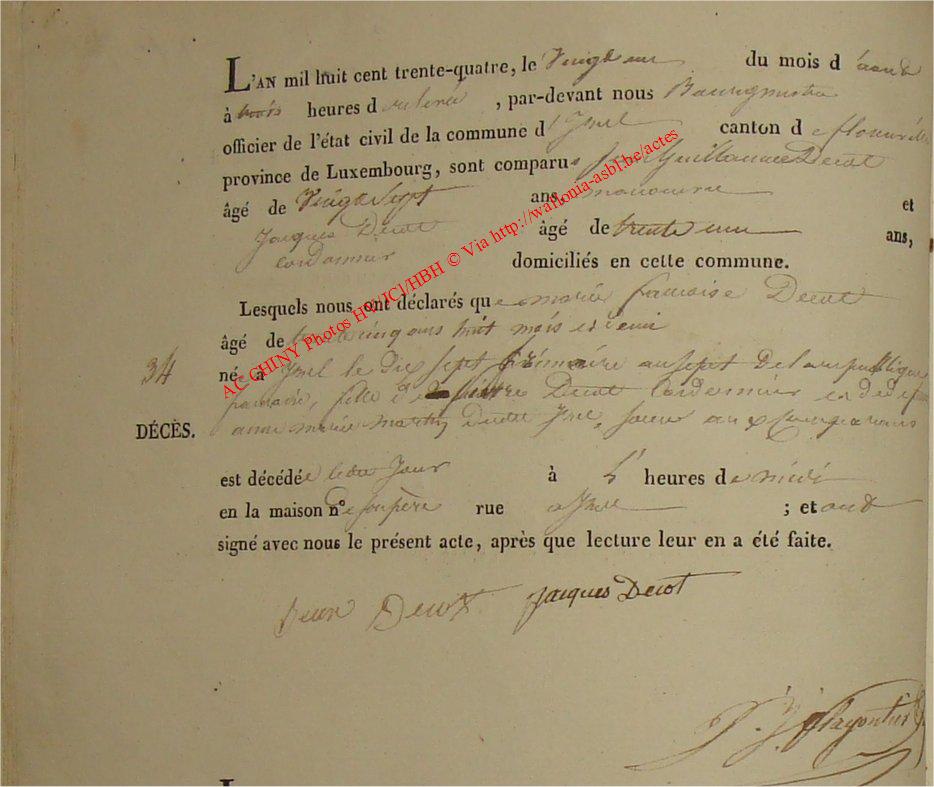 L'AN mil huit cent trente-quatre, le Vingt un du mois d'août
à trois heures de relevée, par-devant nous Bourgmestre
officier de l'état civil de la commune d'Izel canton de florenville
province de Luxembourg, sont comparus Jean Guillaume Decot
âgé de Vingt Sept ans, manouvrier et
Jacques Decot âgé de trente un ans,
Cordonnier domiciliés en cette commune.
Lesquels nous ont déclarés que marie francoise Decot
âgé de cinq ans huit mois et demi
34
né à Izel le dix sept frimaire an sept de la république
francaise, fille de pierre Decot Cordonnier et de
DÉCÈS.
anne marie d'Izel, soeur aux
est décédée ledit Jour à heures de midi
en la maison n° de son père rue a Izel ; et ont
signé avec nous le présent acte, après que lecture leur en a été faite.
Jean Decot Jacques Decot
AC CHINY Photos HV/JCl/HBH © Via http://wallonia-asbl.be/actes